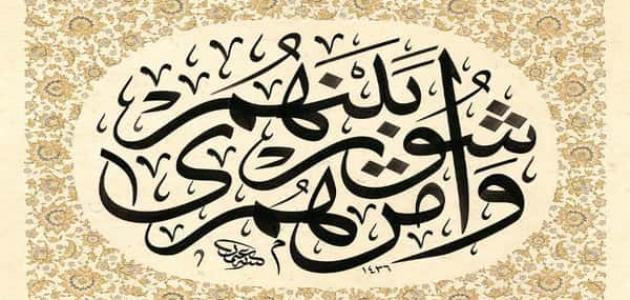 وَأَمْرُهُمْ شُورَى بَيْنَهُمْ
١٤٣٦